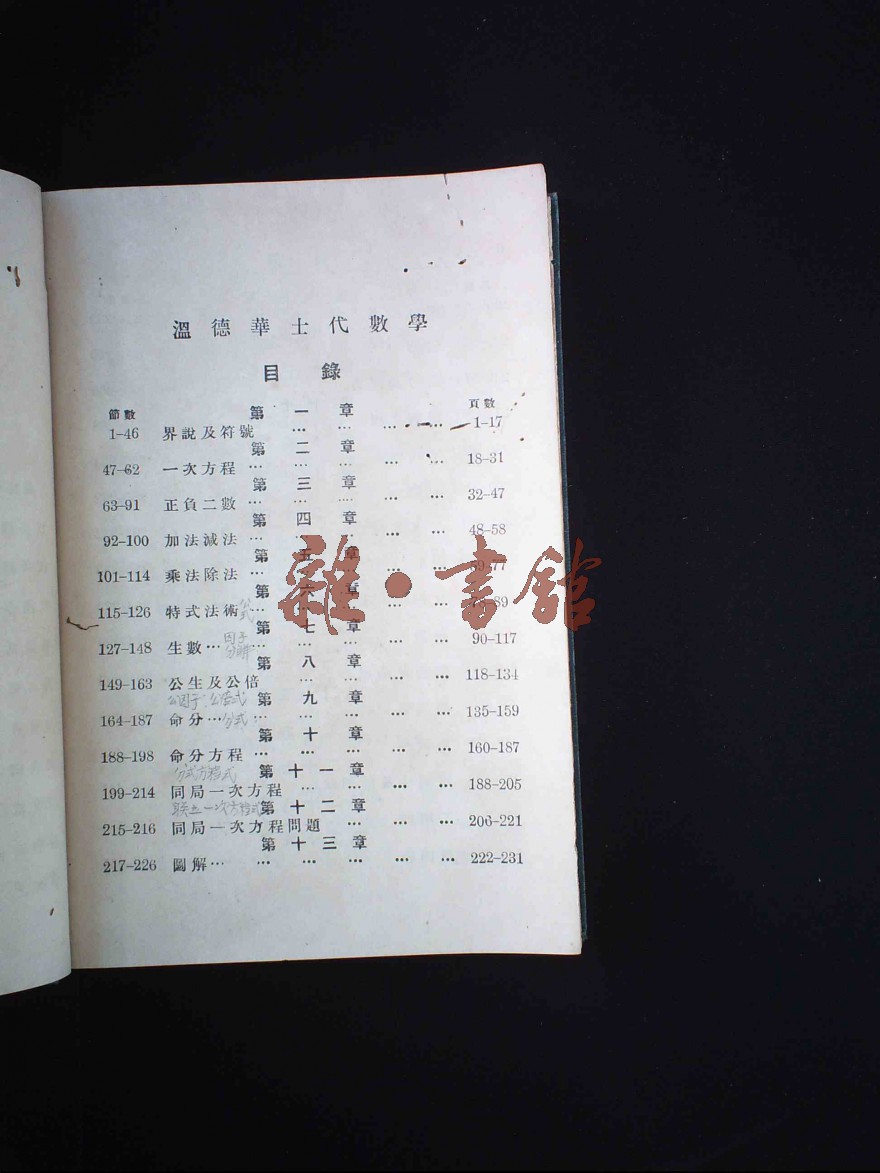 溫德華士代數學
目錄
節數 第一章 頁數
1-46 界說及符號 … … … … 1-17
第二章
47-62 一次方程 … … … … 18-31
第三章
63-91 正負二數 … … … … 32-47
第四章
92-100 加法減法 … … … … 48-58
第五章
101-114 乘法除法 … … … … 59-77
第六章
115-126 特式法術 … … … … 78-89
公式
第七章
127-148 生數 … … … … … 90-117
因子
分解
第八章
149-163 公生及公倍 … … … … 118-134
公因子 公倍式 第九章
164-187 命分 … 分式 … … … … 135-159
第十章
188-198 命分方程 … … … … … 160-187
分式方程式 第十一章
199-214 同局一次方程 … … … … 188-205
联立一次方程式 第十二章
215-216 同局一次方程問題 … … … 206-221
第十三章
217-226 圖解 … … … … … … 222-231
雜·書館